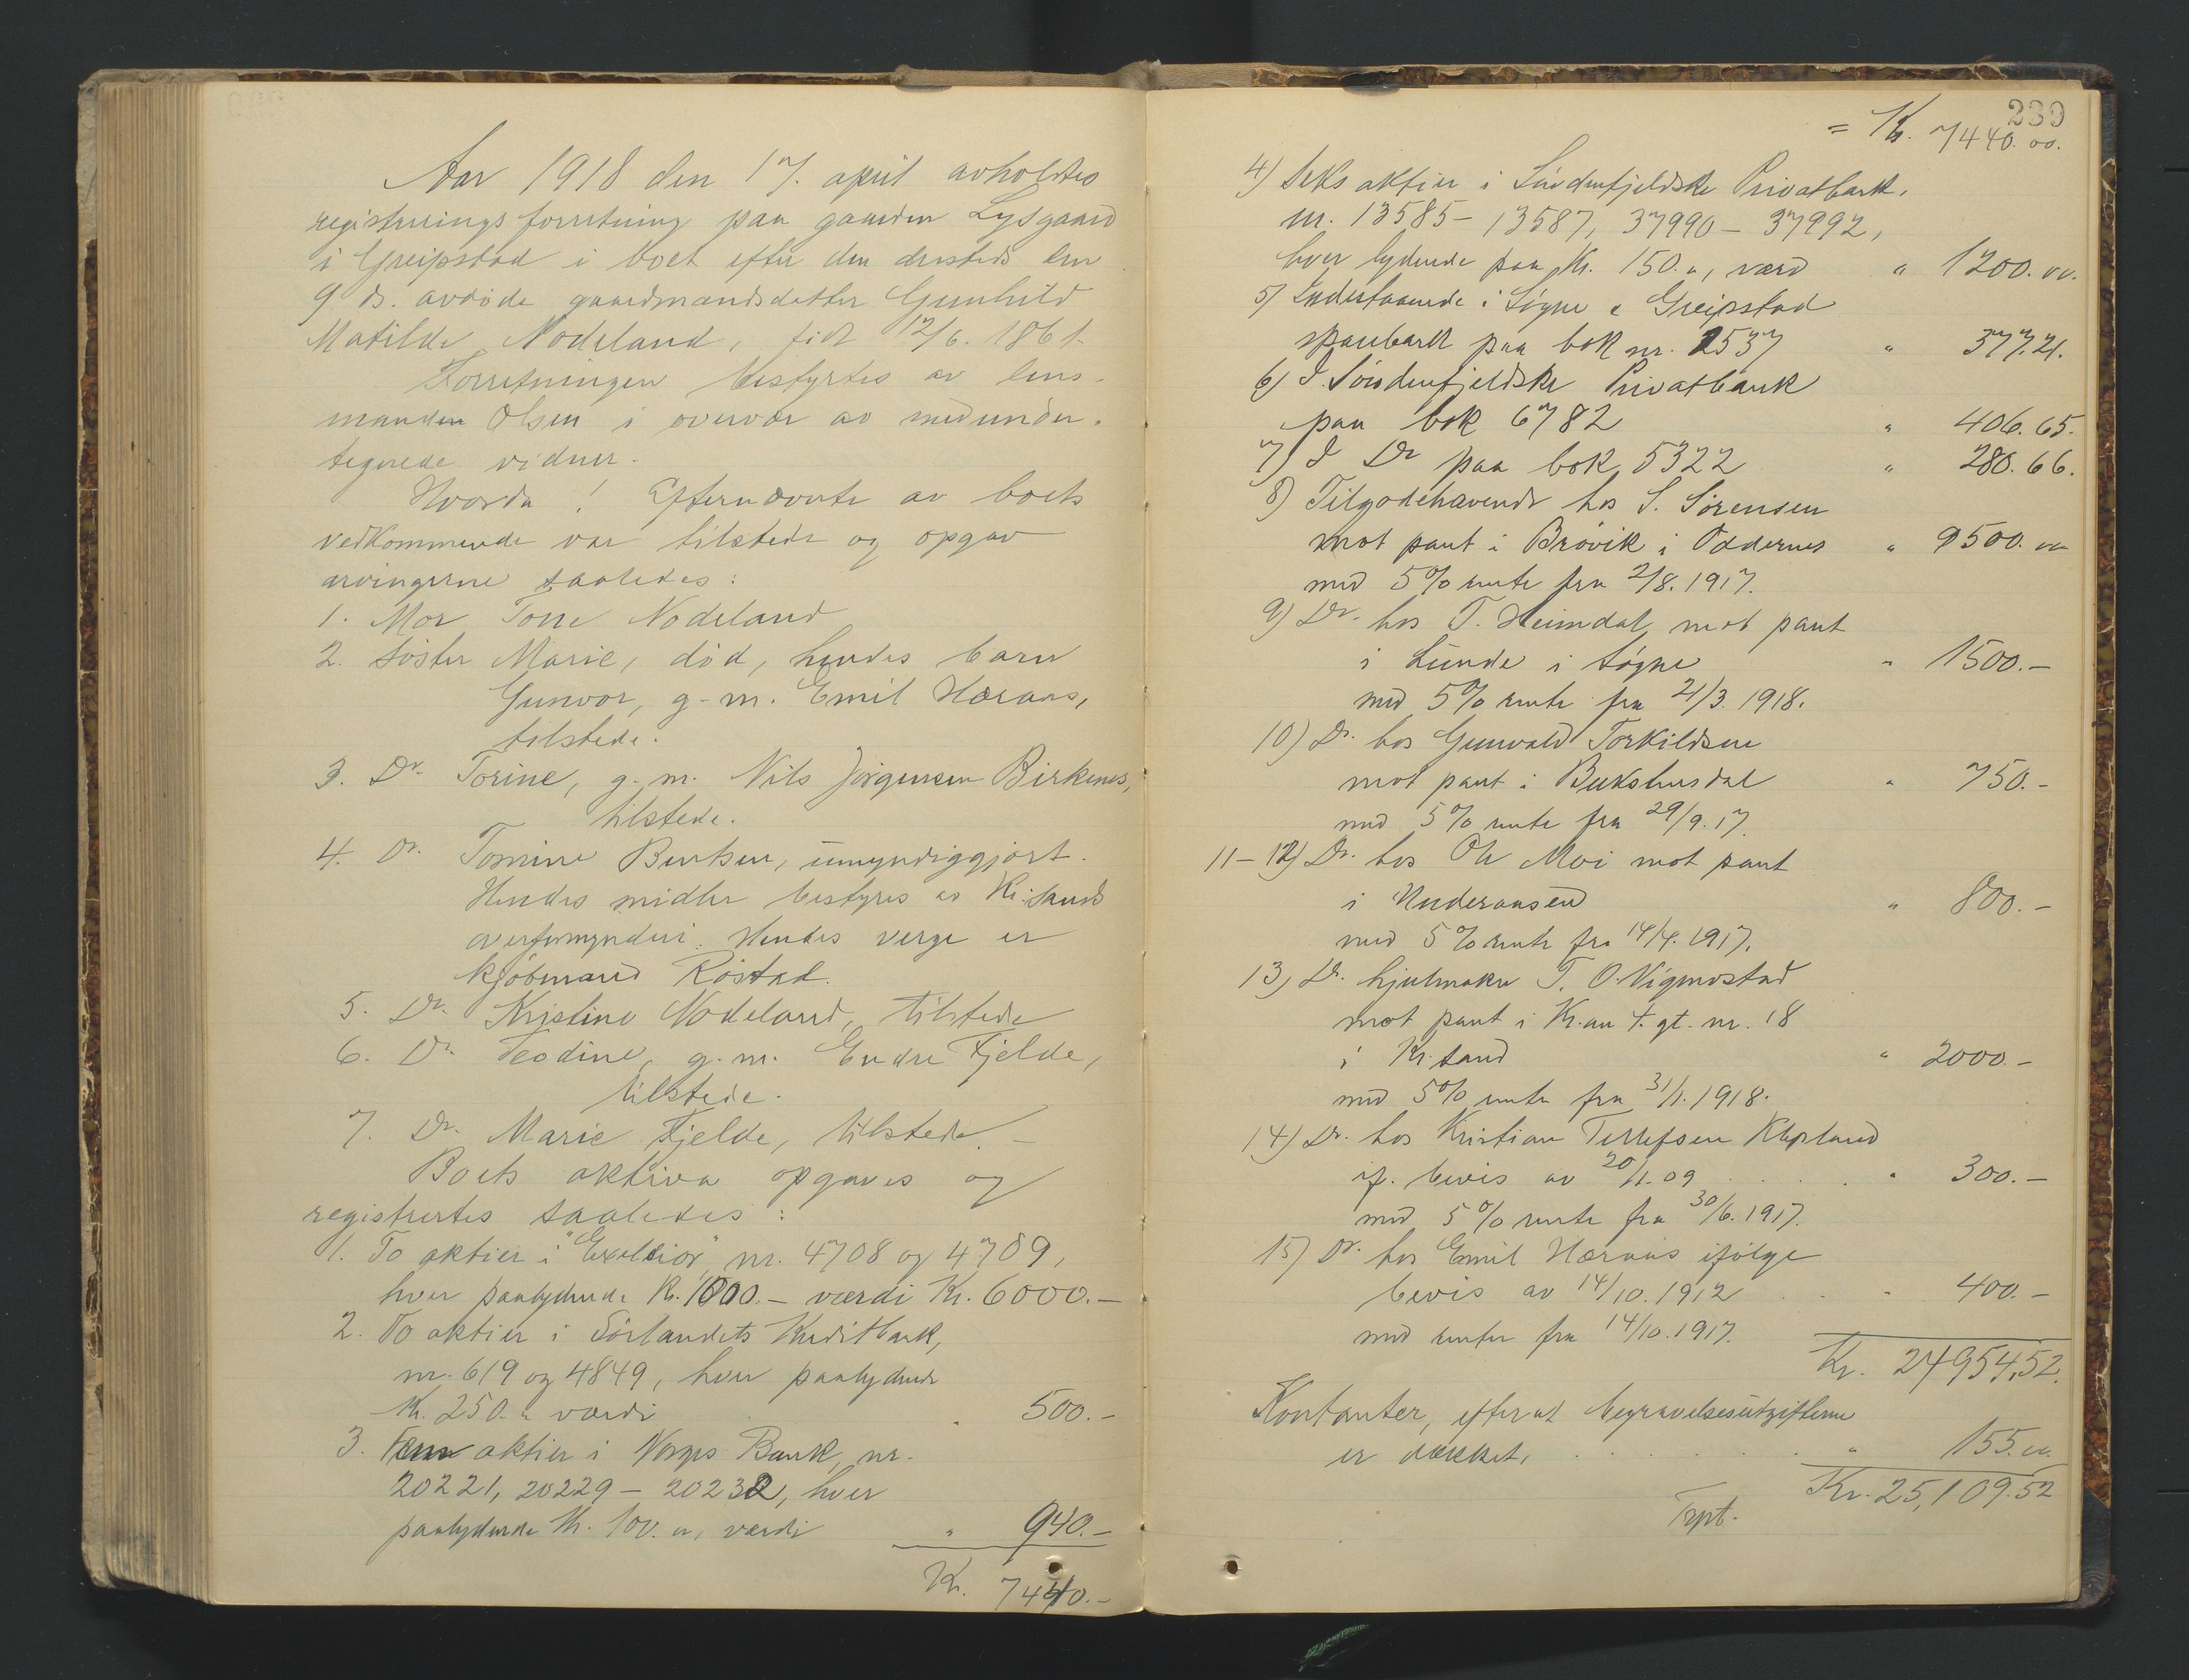 Aar 1918 den 17. april avholdtes
registreringsforretning paa gaarden Lysgaard
i Greipstad i boet efter den dersteds den
9 ds. avdøde gaardmandsdatter Gunhild
Matilde Nodeland, født 12/6. 1861.
Forretningen bestyrtes av lens-
manden Olsen i overvær av medunder-
tegnede vidner.
Hvorda! Efternævnte av boets
vedkommende var tilstede og opgav
arvingerne saaledes:
1. Mor Tone Nodeland
2. Søster Marie, død, hendes barn
Gunvor, g. m. Emil Haraas,
tilstede.
3. Do. Torine, g. m. Nils Jørgensen Birkenes,
tilstede.
4. Do. Tomine Bentsen, umyndiggjort.
Hendes midler bestyres av Kr.sands
overformynderi. Hendes verge er
kjøbmand Røstad.
5. Do. Kristine Nodeland, tilstede
6. Do. Teodine, g. m. Endre Fjelde,
tilstede.
7. Do. Marie Fjelde, tilstede. –
Boets aktiva opgaves og
registrertes saaledes:
1. To aktier i "Exelsior", nr. 4708 og 4709,
hver paalydende Kr. 1000.– værdi Kr. 6000.–
2. To aktier i Sørlandets Kreditbank,
nr. 619 og 4849, hver paalydende
Kr. 250. „ værdi „ 500.–
3. Fem aktier i Norges Bank, nr.
20221, 20229 – 20232, hver
paalydende Kr. 100. „, værdi „ 940.–
Kr. 7440.–
239
= Kr. 7440. oo.
4) Seks aktier i Søndenfjeldske Privatbank,
nr. 13585 – 13587, 37990 – 37992,
hver lydende paa Kr. 150. „, værd „ 1200. oo.
5) Indestaaende i Søgne & Greipstad
sparebank paa bok nr. 2537 „ 377.21.
6) I Søndenfjeldske Privatbank
paa bok 6782 „ 406.65.
7) I Do paa bok 5322 „ 280.66.
8) Tilgodehavende hos S. Sørensen
mot pant i Brøvik i Oddernes „ 9500. oo
med 5% rente fra 2/8. 1917.
9) Do. hos T. Heimdal mot pant
i Lunde i Søgne „ 1500.–
med 5% rente fra 21/3. 1918.
10) Do. hos Gunvald Torkildsen
mot pant i Bukshusdal „ 750.–
med 5% rente fra 29/9. 17.
11–12) Do. hos Ole Moi mot pant
i Underaasen „ 800.–
med 5% rente fra 14/4. 1917.
13) Do. hjulmaker T. O. Vigmostad
mot pant i Kr. an 4. gt. nr. 18
i Kr.sand „ 2000.–
med 5% rente fra 31/1. 1918.
14) Do. hos Kristian Tellefsen Klepland
if. bevis av 20/1. 09 „ 300.–
med 5% rente fra 30/6. 1917.
15) Do. hos Emil Haraas ifølge
bevis av 14/10. 1912 „ 400.–
med renter fra 14/10. 1917.
Kr. 24954,52.
Kontanter, efterat begravelsesutgifterne
er dækket, „ 155. oo.
Kr. 25,109.52
Trpt.